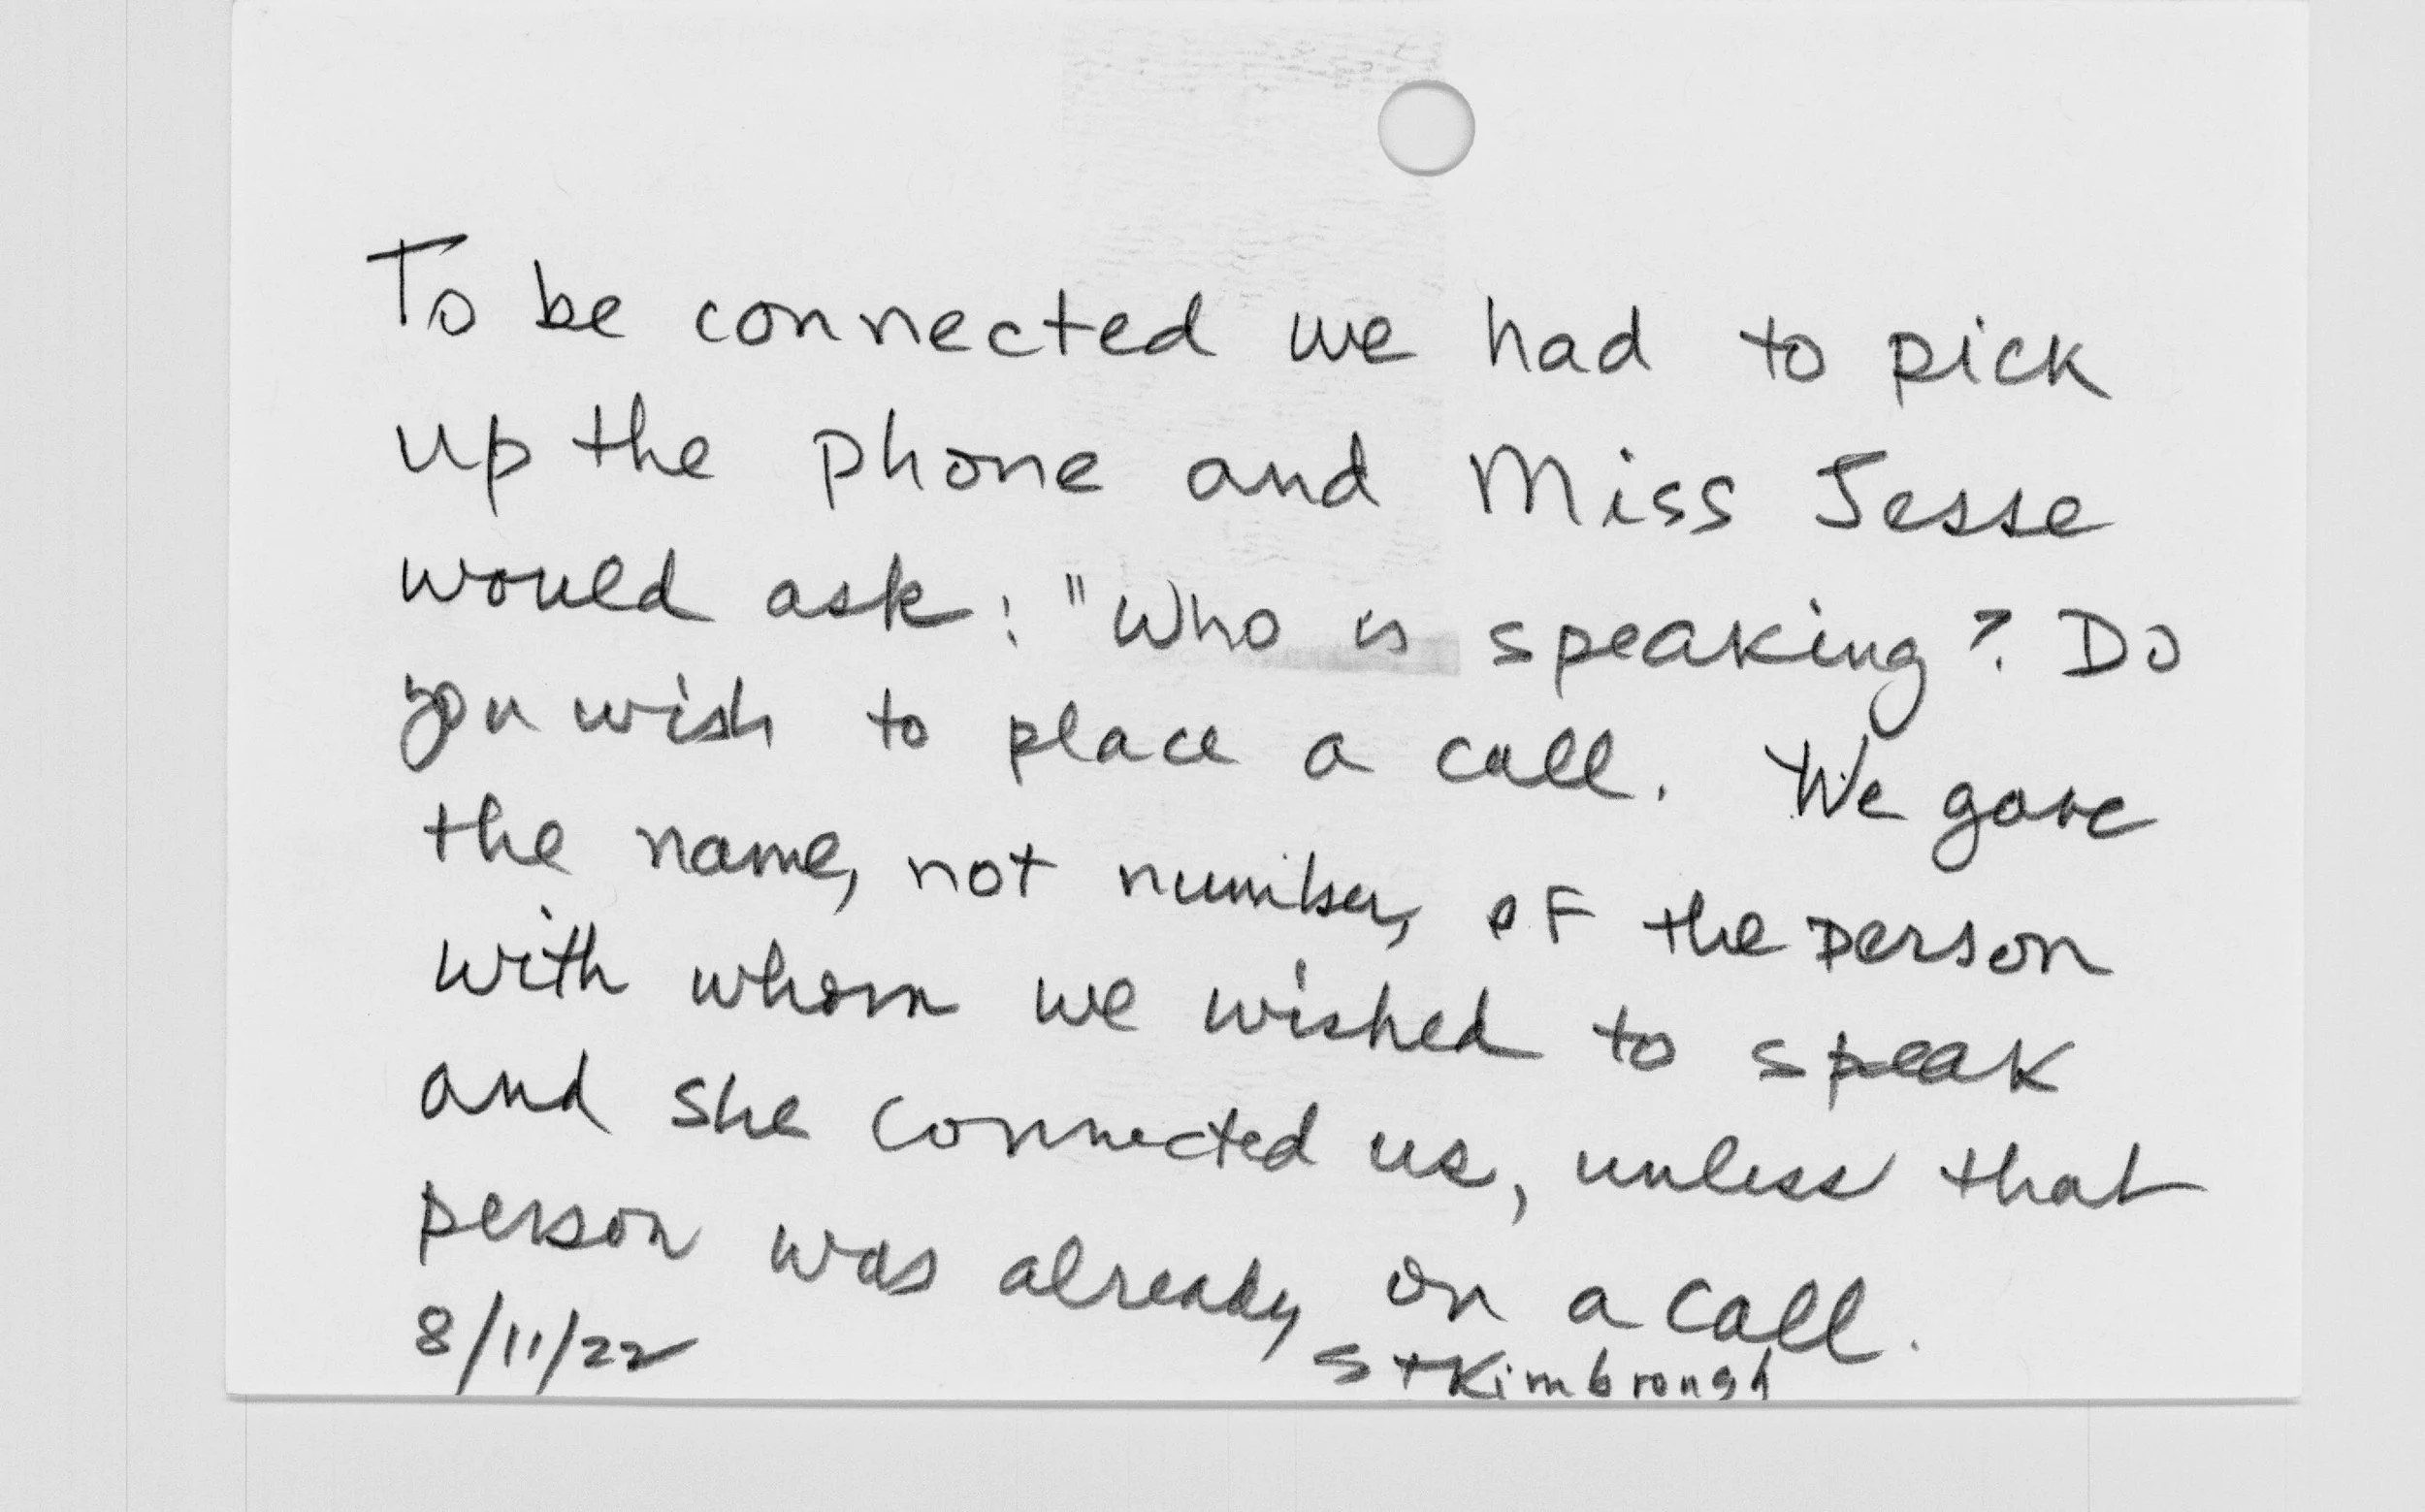 To be connected we had to pick
up the phone and Miss Jesse
would ask: "Who is speaking? Do
you wish to place a call. We gave
the name, not number, of the person
with whom we wished to speak
and she connected us, unless that
person was already on a call.
8/11/22 S T Kimbrough